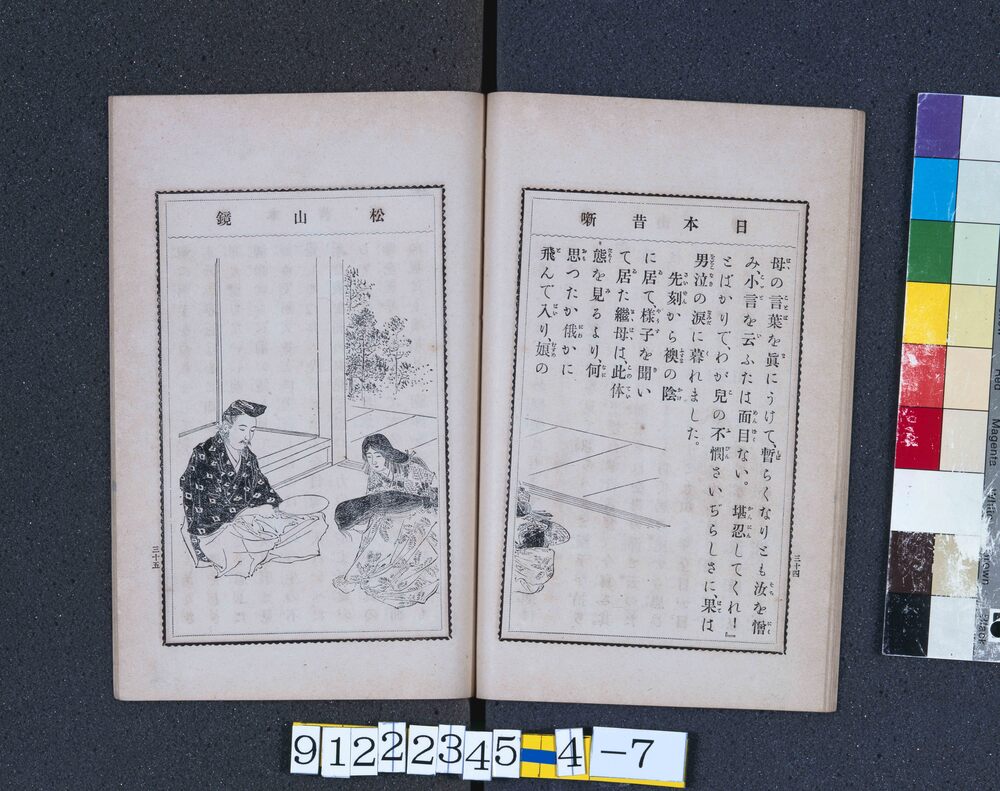 日本昔噺
母の言葉を眞にうけて、暫らくなりとも汝を憎
み、小言を云ふたは面目ない。堪忍してくれ！』
とばかりで、わが兒の不憫さいぢらしさに、果は
男泣の涙に暮れました。
先刻から襖の陰
に居て、様子を聞い
て居た繼母は、此体
態を見るより、何
思つたか俄かに
飛んで入り、娘の
三十四
松山鏡
三十五
9122345-4-7
Magenta